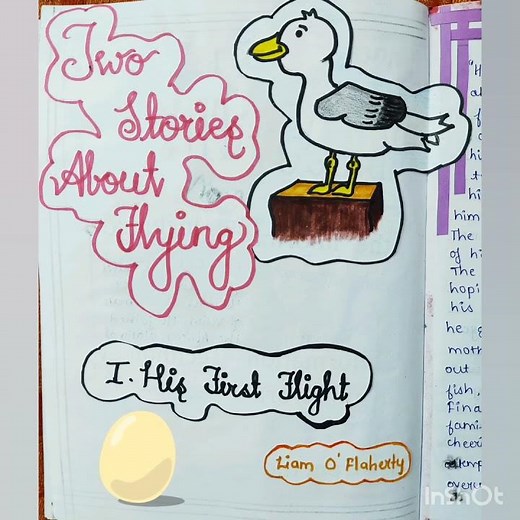 Two
Stories
About
Flying
I. His First Flight
Liam O'Flaherty
"H
hi
hi
him
The
of hi
The
hopi
his
he
moth
out
fish,
Fina
fami
cheeri
InShOt